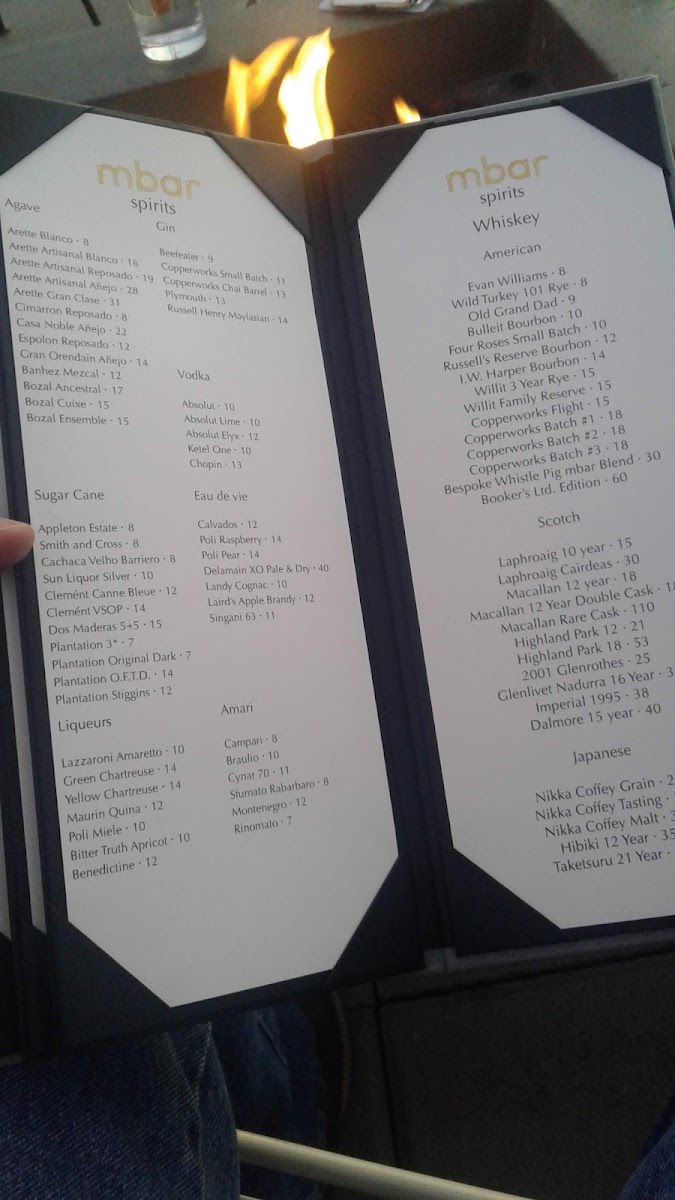 mbar
spirits
Agave
Arette Blanco · 8
Arette Artisanal Blanco · 16
Arette Artisanal Reposado · 19
Arette Artisanal Añejo · 28
Arette Gran Clase · 31
Cimarron Reposado · 8
Casa Noble Añejo · 22
Espolon Reposado · 12
Gran Orendain Añejo · 14
Banhez Mezcal · 12
Bozal Ancestral · 17
Bozal Cuixe · 15
Bozal Ensemble · 15
Gin
Beefeater · 9
Copperworks Small Batch · 11
Copperworks Chai Barrel · 13
Plymouth · 13
Russell Henry Maylasian · 14
Vodka
Absolut · 10
Absolut Lime · 10
Absolut Elyx · 12
Ketel One · 10
Chopin · 13
Sugar Cane
Appleton Estate · 8
Smith and Cross · 8
Cachaca Velho Barriero · 8
Sun Liquor Silver · 10
Clemént Canne Bleue · 12
Clemént VSOP · 14
Dos Maderas 5+5 · 15
Plantation 3* · 7
Plantation Original Dark · 7
Plantation O.F.T.D. · 14
Plantation Stiggins · 12
Eau de vie
Calvados · 12
Poli Raspberry · 14
Poli Pear · 14
Delamain XO Pale & Dry · 40
Landy Cognac · 10
Laird's Apple Brandy · 12
Singani 63 · 11
Liqueurs
Lazzaroni Amaretto · 10
Green Chartreuse · 14
Yellow Chartreuse · 14
Maurin Quina · 12
Poli Miele · 10
Bitter Truth Apricot · 10
Benedictine · 12
Amari
Campari · 8
Braulio · 10
Cynar 70 · 11
Sfumato Rabarbaro · 8
Montenegro · 12
Rinomato · 7
mbar
spirits
Whiskey
American
Evan Williams · 8
Wild Turkey 101 Rye · 8
Old Grand Dad · 9
Bulleit Bourbon · 10
Four Roses Small Batch · 10
Russell's Reserve Bourbon · 12
I.W. Harper Bourbon · 14
Willit 3 Year Rye · 15
Willit Family Reserve · 15
Copperworks Flight · 15
Copperworks Batch #1 · 18
Copperworks Batch #2 · 18
Copperworks Batch #3 · 18
Bespoke Whistle Pig mbar Blend · 30
Booker's Ltd. Edition · 60
Scotch
Laphroaig 10 year · 15
Laphroaig Cairdeas · 30
Macallan 12 year · 18
Macallan 12 Year Double Cask ·
Macallan Rare Cask · 110
Highland Park 12 · 21
Highland Park 18 · 53
2001 Glenrothes · 25
Glenlivet Nadurra 16 Year ·
Imperial 1995 · 38
Dalmore 15 year · 40
Japanese
Nikka Coffey Grain ·
Nikka Coffey Tasting ·
Nikka Coffey Malt ·
Hibiki 12 Year · 35
Taketsuru 21 Year ·